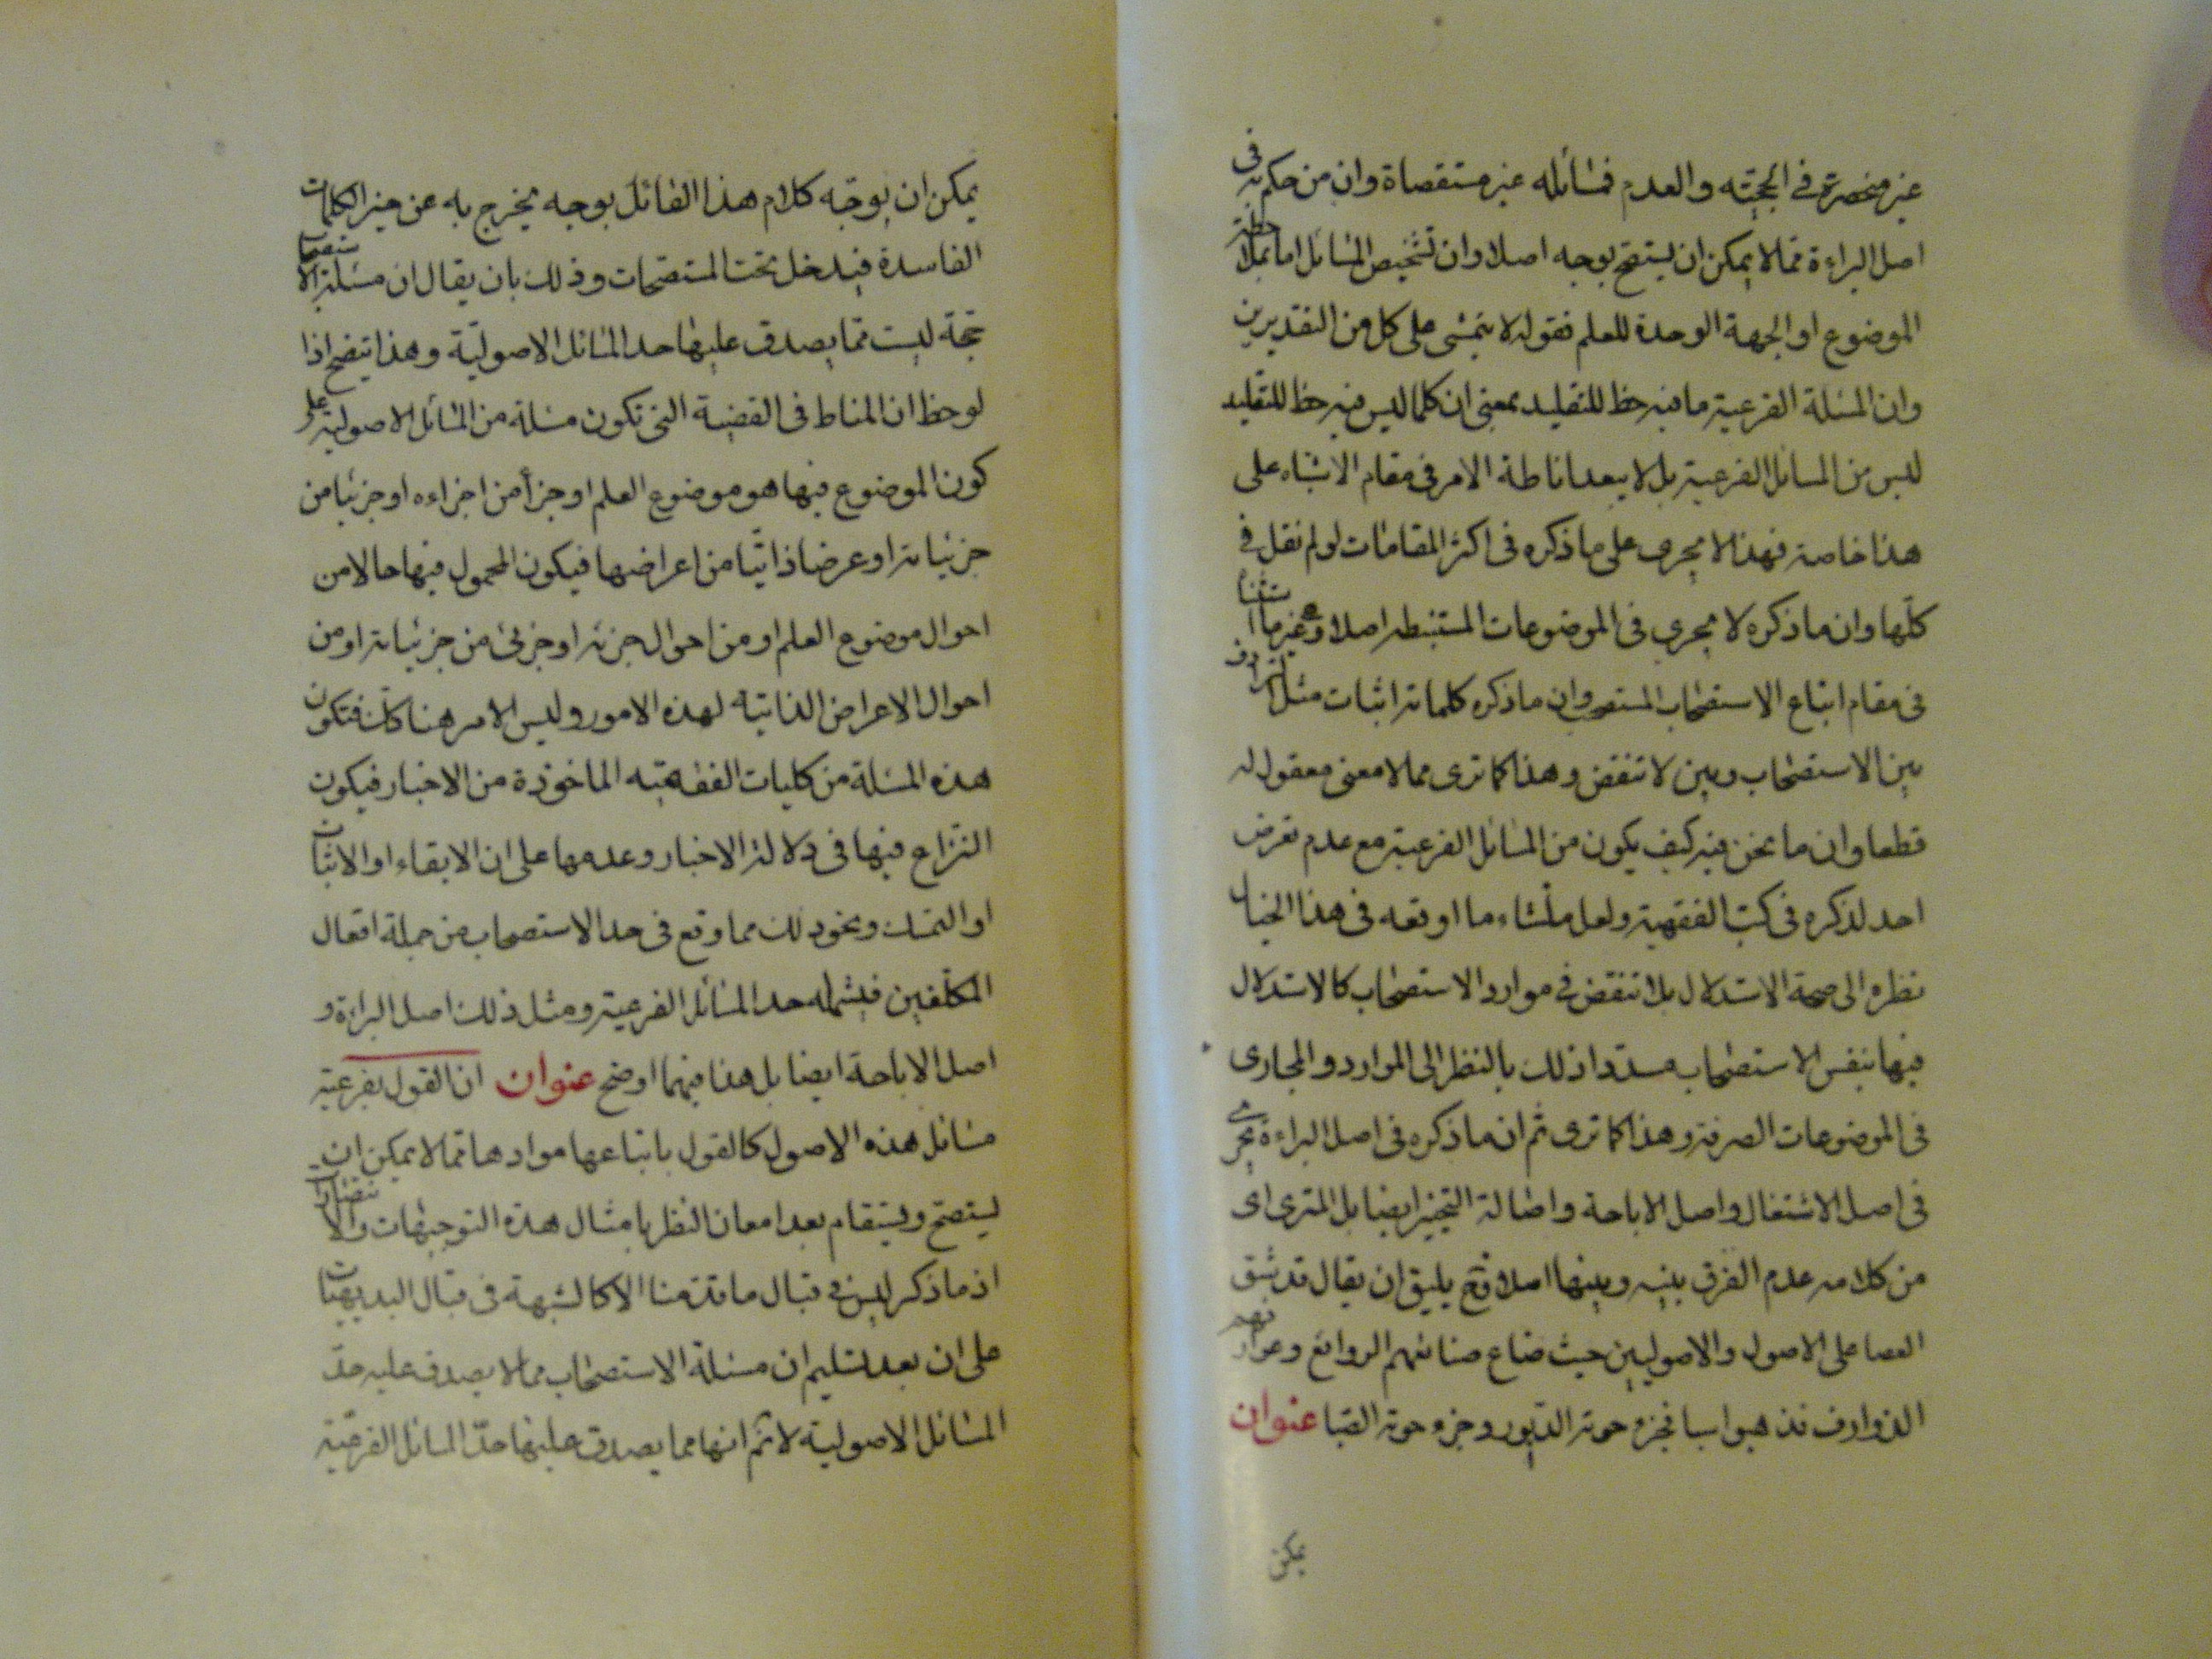 غير منحصرة في الحجيّة والعدم فمسائله غير مستقصاة وان من حكم في
اصل البراءة مما لا يمكن ان يستصح بوجه اصلا وان تشخيص المسائل اما بملاحظة
الموضوع او الجهة الوحدة للعلم فقوله لا يتمشى على كل من التقديرين
وان المسئلة الفرعية ما فيه حظ للتقليد بمعنى ان كلما ليس فيه حظ للتقليد
ليس من المسائل الفرعية بل لا يبعد اناطة الامر في مقام الاشتباه على
هذا خاصة فهذا لا يجري على ما ذكره في اكثر المقامات لو لم نقل في
كلّها وان ما ذكره لا يجري في الموضوعات المستنبطه اصلا وغيرها
في مقام اتباع الاستصحاب المستصحب وان ما ذكره كلماته اثبات مثل الترادف
بين الاستصحاب وبين لا تنقض وهذا كما ترى مما لا معنى معقول له
قطعا وان ما نحن فيه كيف يكون من المسائل الفرعية مع عدم تعرض
احد لذكره في كتب الفقهية ولعل منشاء ما اوقعه في هذا الخيال
نظره الى صحة الاستدلال بلا تنقض في موارد الاستصحاب كالاستدلال
فيها بنفس الاستصحاب وذلك بالنظر الى الموارد والمجاري
في الموضوعات الصرفة وهذا كما ترى ثم ان ما ذكره في اصل البراءة يجري
في اصل الاشتغال واصل الاباحة واصالة التخيير ايضا بل المترى اى
من كلامه عدم الفرق بينه وبينها اصلا فح يليق ان يقال قد شق
العصا على الاصول والاصوليين حيث ضاع صنايعهم الروايع وعوارفهم
الذوارف فذهبوا سبا فجزوه الدبور وجزوه الصبا عنوان
يمكن
يمكن ان يوجّه كلام هذا القائل بوجه يخرج به عن حيز الكلمات
الفاسدة فيدخل تحت المستصحات وذلك بان يقال ان مسئلة الاستصحاب
حجة ليست مما يصدق عليها حد المسائل الاصوليّة وهذا يتضح اذا
لوحظ ان المناط في القضية التي تكون مسئلة من المسائل الاصولية على
كون الموضوع فيها هو موضوع العلم او جزأ من اجزاءه او جزئيا من
جزئياته او عرضا ذاتيّا من اعراضها فيكون المحمول فيها حالا من
احوال موضوع العلم او من احوال جزئه او جزئي من جزئياته او من
احوال الاعراض الذاتية لهذه الامور وليس الامر هنا كك فتكون
هذه المسئلة من كليات الفقهيّة الماخوذة من الاخبار فيكون
النزاع فيها في دلالة الاخبار وعدمها على ان الابقاء او الاثبات
او التمسك ونحو ذلك مما وقع في حد الاستصحاب من جملة افعال
المكلّفين فيشمله حد المسائل الفرعية ومثل ذلك اصل البراءة و
اصل الاباحة ايضا بل هذا فيهما اوضح عنوان ان القول بفرعية
مسائل هذه الاصول كالقول باتباعها مواردها مما لا يمكن ان
يستصح ويستقام بعد امعان النظر بامثال هذه التوجيهات والانتصارات
اذ ما ذكر ليس في قبال ما قدّمنا الا كالشبهة في قبال البديهيات
على ان بعد تسليم ان مسئلة الاستصحاب مما لا يصدق عليه حدّ
المسائل الاصولية لا نم انها مما يصدق عليها حدّ المسائل الفرعيّة